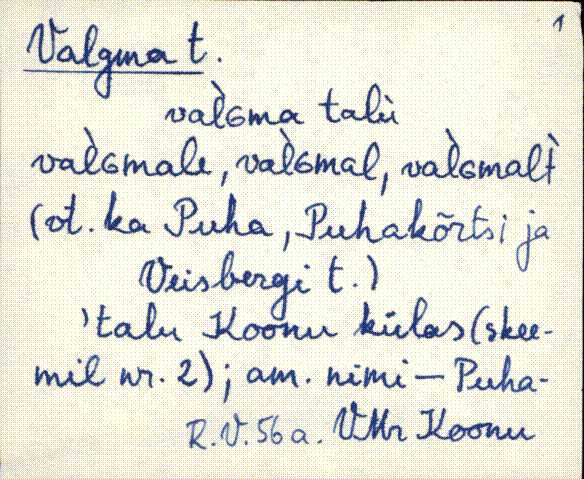 1
Valgma t.
vaʟ̀ɢma talù
vaʟ̀ɢmale, vaʟ̀ɢmal, vaʟ̀ɢmalt̀
(vt. ka Puha, Puhakõrtsi ja
Veisbergi t.)
'talu Koonu külas (skee-
mil nr. 2); am. nimi — Puha-
R.V. 56 a. VMr Koonu